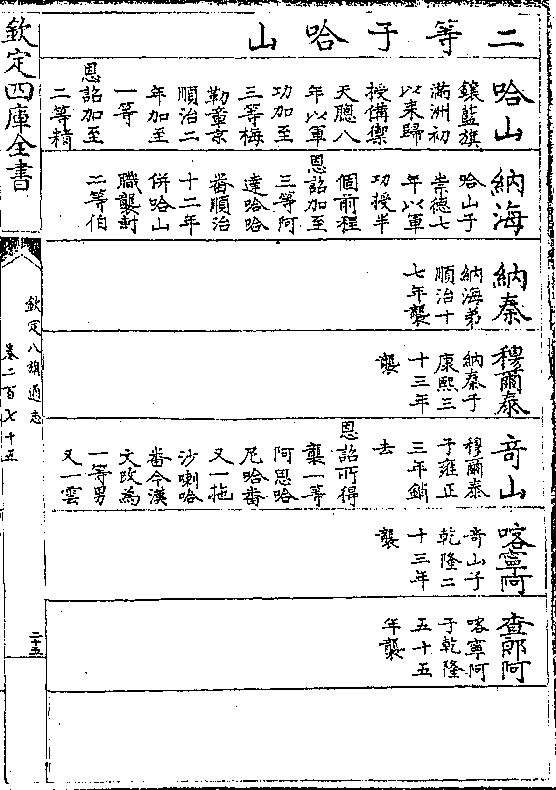 二等子哈山
哈山
鑲藍旗
滿洲初
以來歸
授備禦
天聰八
年以軍
功加至
三等梅
勒章京
順治二
年加至
一等
恩詔加至
二等精
納海
哈山子
崇德七
年以軍
功授半
個前程
恩詔加至
三等阿
達哈哈
番順治
十二年
併哈山
職襲封
二等伯
納泰
納海弟
順治十
七年襲
穆爾泰
納泰子
康熙三
十三年
襲
奇山
穆爾泰
子雍正
三年銷
去
恩詔所得
襲一等
阿思哈
尼哈番
又一拖
沙喇哈
番今漢
文改為
一等男
又一雲
喀寧阿
奇山子
乾隆二
十三年
襲
查郎阿
喀寧阿
子乾隆
五十五
年襲
欽定四庫全書
欽定八旗通志
卷二百七十五
二十五